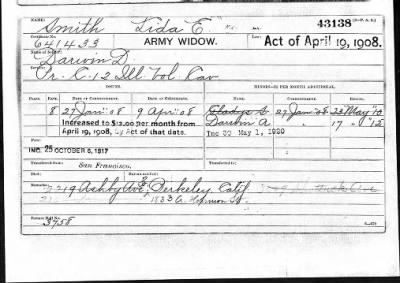 Smith Lida E. 43138
Certificate No.
641433 ARMY WIDOW. Law: Act of April 19, 1908.
Name of Soldier:
Darwin D.
Service:
Pr. C-12 Ill Vol Cav
ISSUES. MINORS—$2 PER MONTH ADDITIONAL.
Class. Rate. Date of Commencement. Date of Certificate. Names. Date of Commencement.
8 27 Jan '08 9 April '08 Gladys 27 Jan '08 23 May '10
Increased to $12.00 per month from Darwin A. " 17 " '15
April 19, 1908, by Act of that date. Inc 30 May 1, 1920
INC. 25 OCTOBER 6, 1917
SAN FRANCISCO.
Remarks:
2219 Ashby Ave, Berkeley, Calif
1833 A.
3758